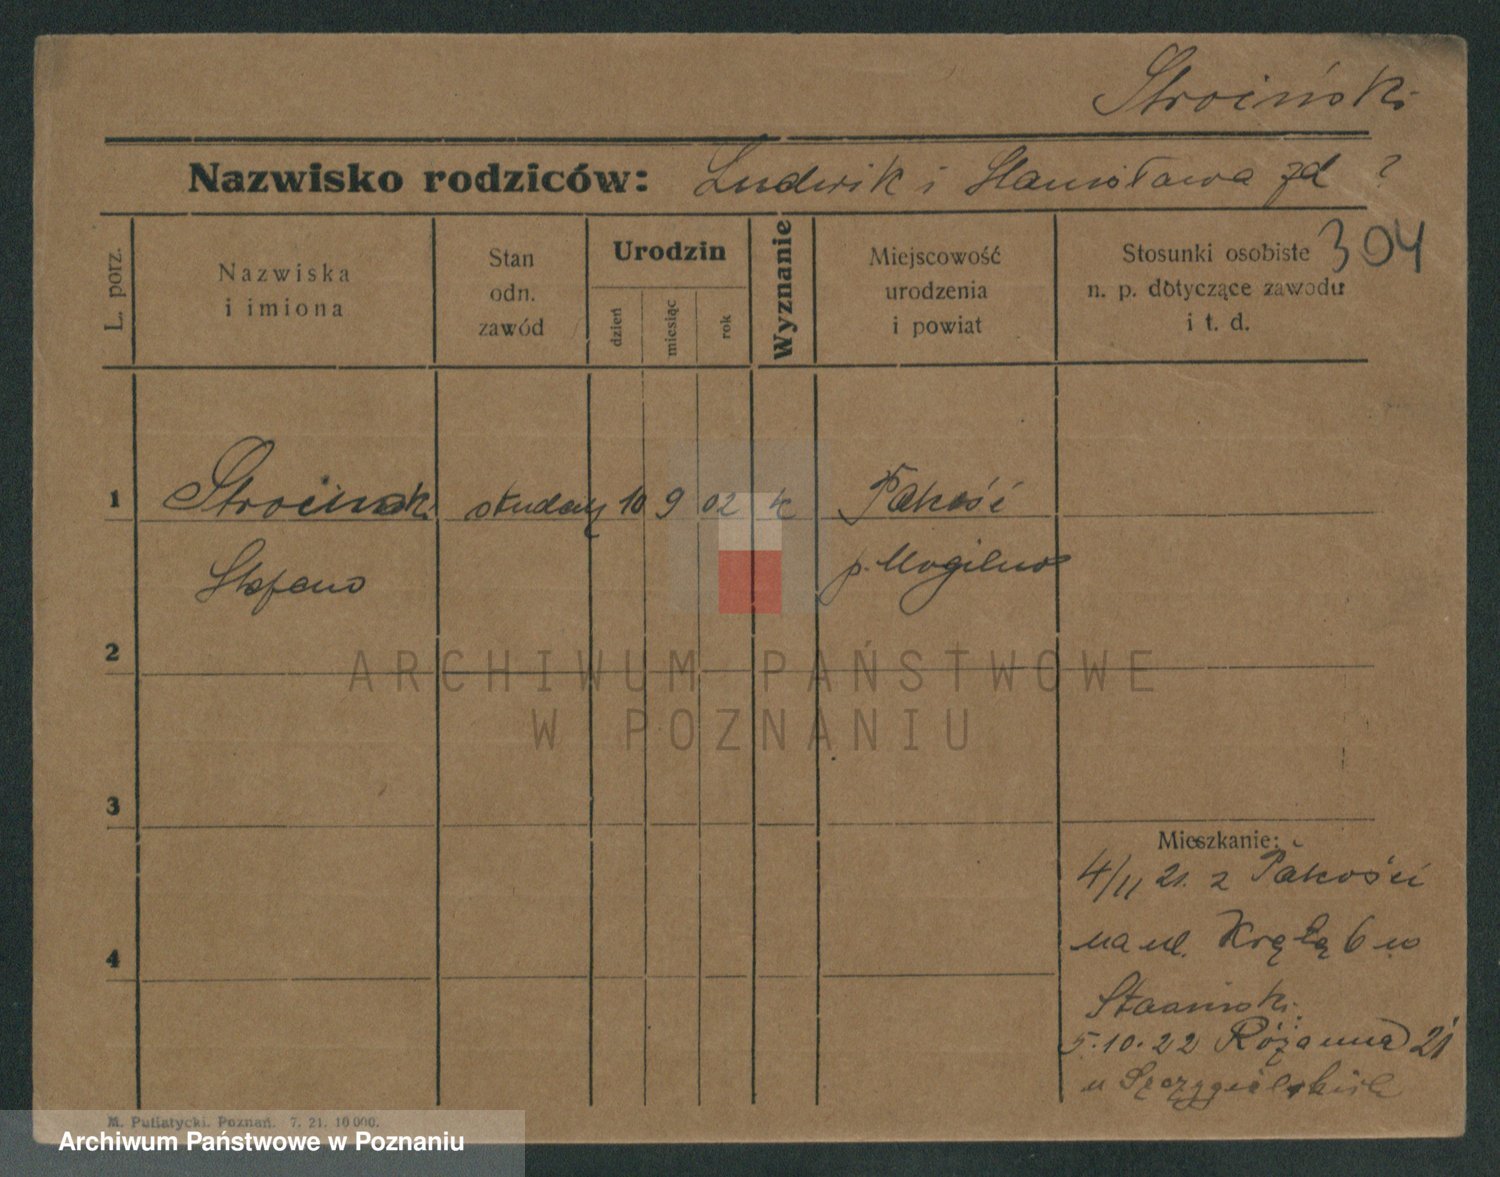 Stroiński
Nazwisko rodziców: Ludwik i Stanisława zd ?
L. porz.
Nazwiska
i imiona
Stan
odn.
zawód
Urodzin
dzień
miesiąc
rok
Wyznanie
Miejscowość
urodzenia
i powiat
Stosunki osobiste
n. p. dotyczące zawodu
i t. d.
304
1 Stroiński student 10 9 02 k Pakość
p. Mogilno
2
3
4
Mieszkanie:
4/11 21. z Pakości
na ul. Krętą 6 u
5.10.22 Różanna 21
u
M. Putiatycki. Poznań. 7. 21. 10000.
ARCHIWUM PAŃSTWOWE
W POZNANIU
Archiwum Państwowe w Poznaniu